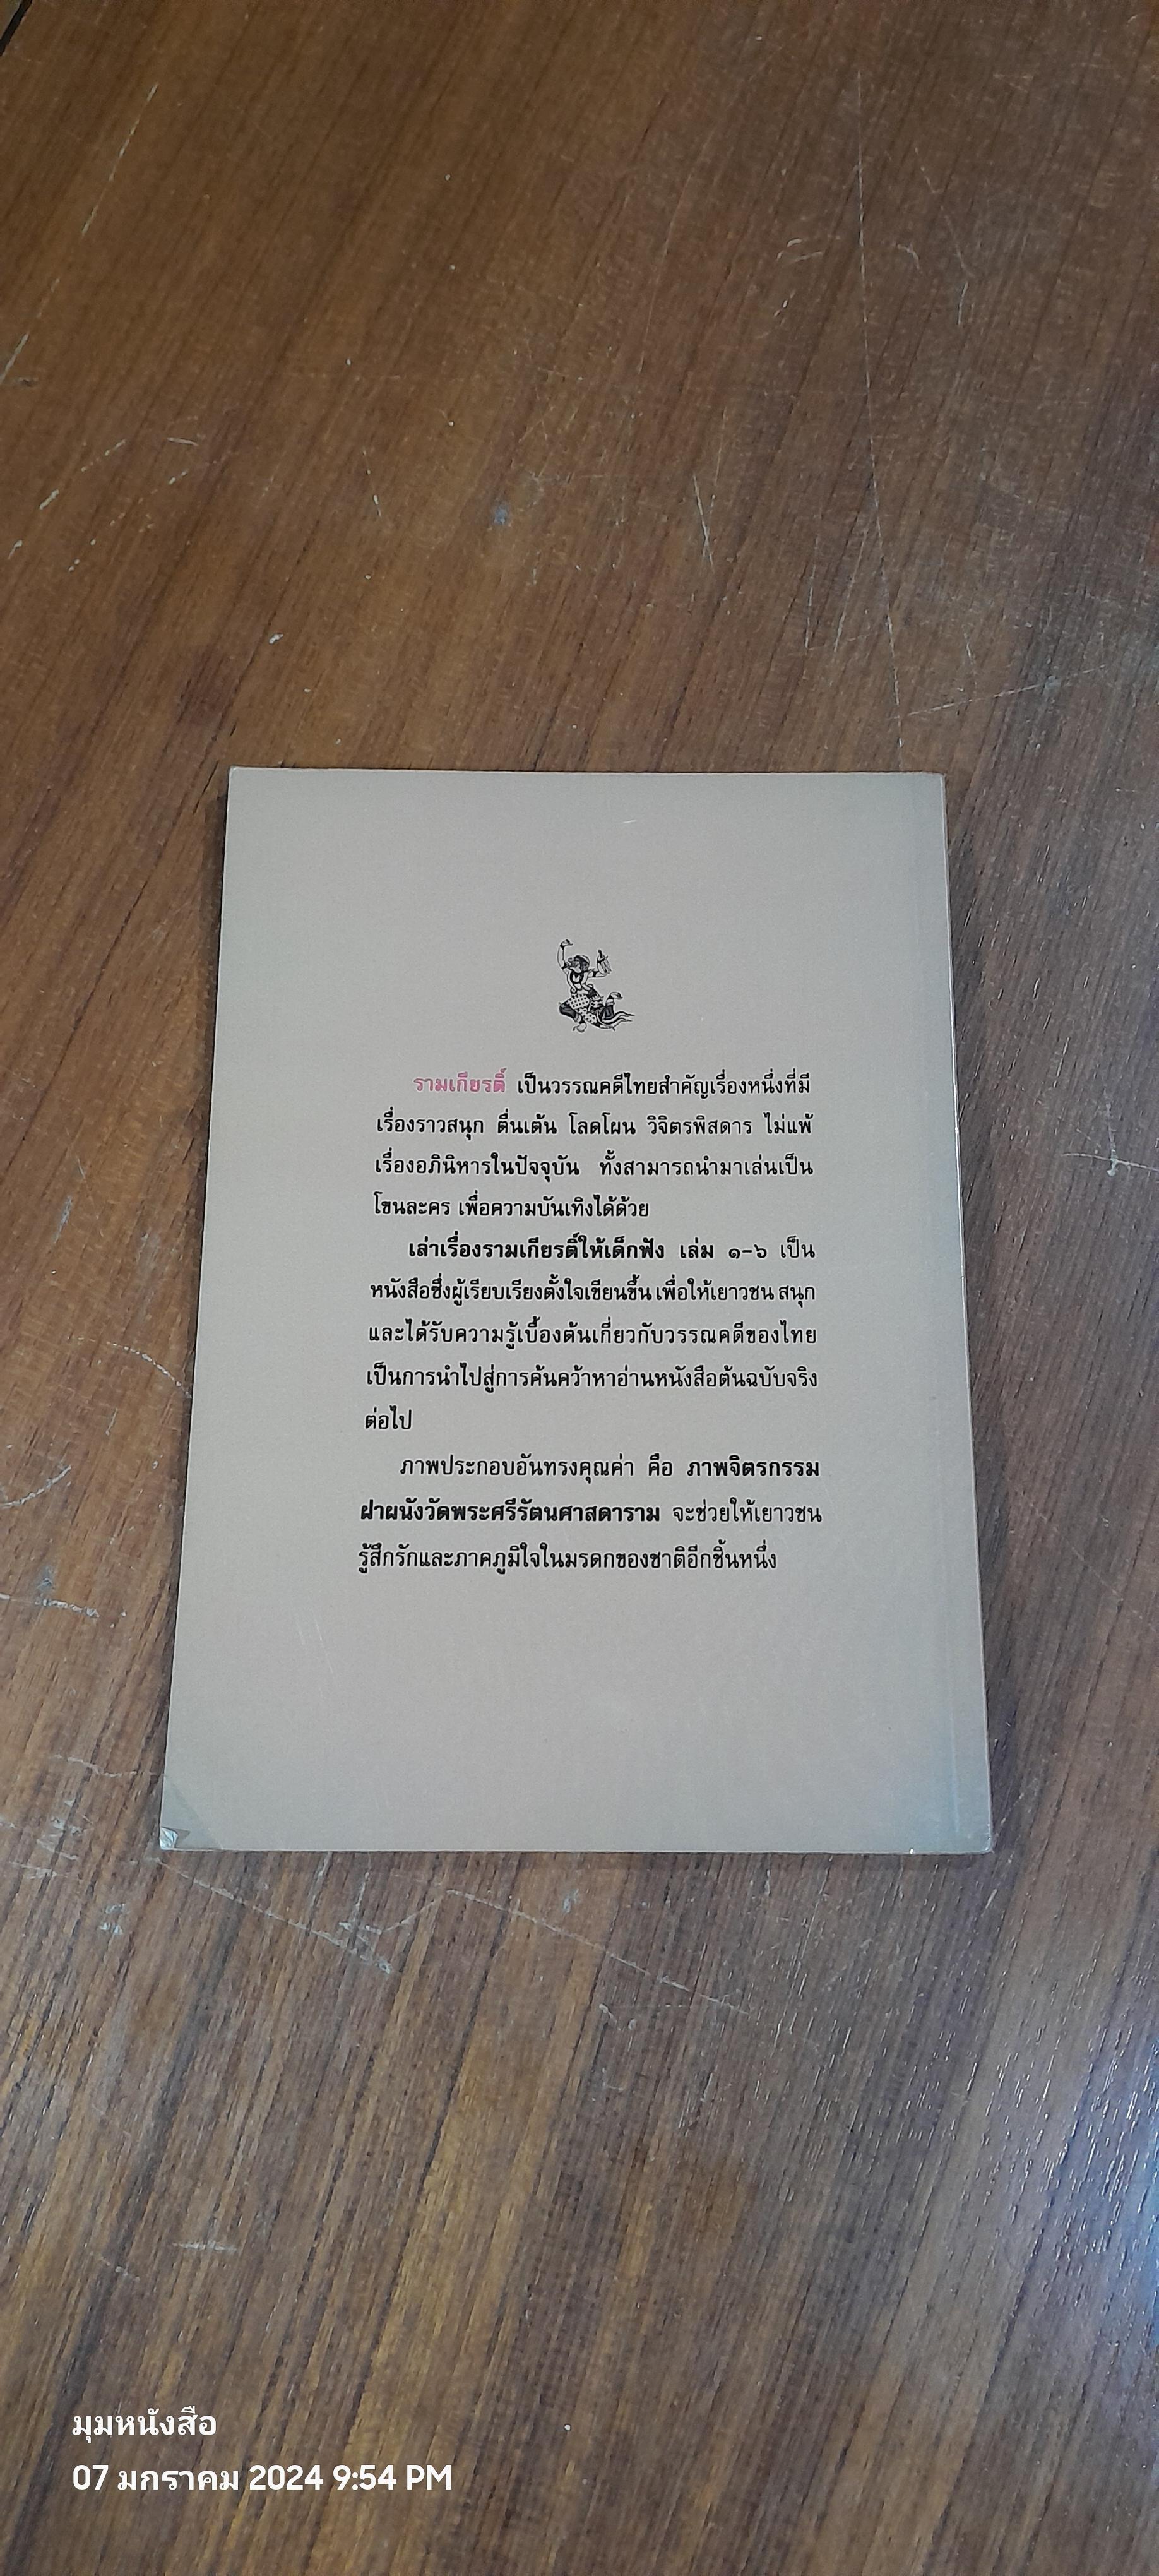 รามเกียรติ์ เป็นวรรณคดีไทยสำคัญเรื่องหนึ่งที่มี
เรื่องราวสนุก ตื่นเต้น โลดโผน วิจิตรพิสดาร ไม่แพ้
เรื่องอภินิหารในปัจจุบัน ทั้งสามารถนำมาเล่นเป็น
โขนละคร เพื่อความบันเทิงได้ด้วย
เล่าเรื่องรามเกียรติ์ให้เด็กฟัง เล่ม ๑-๖ เป็น
หนังสือซึ่งผู้เรียบเรียงตั้งใจเขียนขึ้น เพื่อให้เยาวชน สนุก
และได้รับความรู้เบื้องต้นเกี่ยวกับวรรณคดีของไทย
เป็นการนำไปสู่การค้นคว้าหาอ่านหนังสือต้นฉบับจริง
ต่อไป
ภาพประกอบอันทรงคุณค่า คือ ภาพจิตรกรรม
ฝาผนังวัดพระศรีรัตนศาสดาราม จะช่วยให้เยาวชน
รู้สึกรักและภาคภูมิใจในมรดกของชาติอีกชิ้นหนึ่ง
มุมหนังสือ
07 มกราคม 2024 9:54 PM